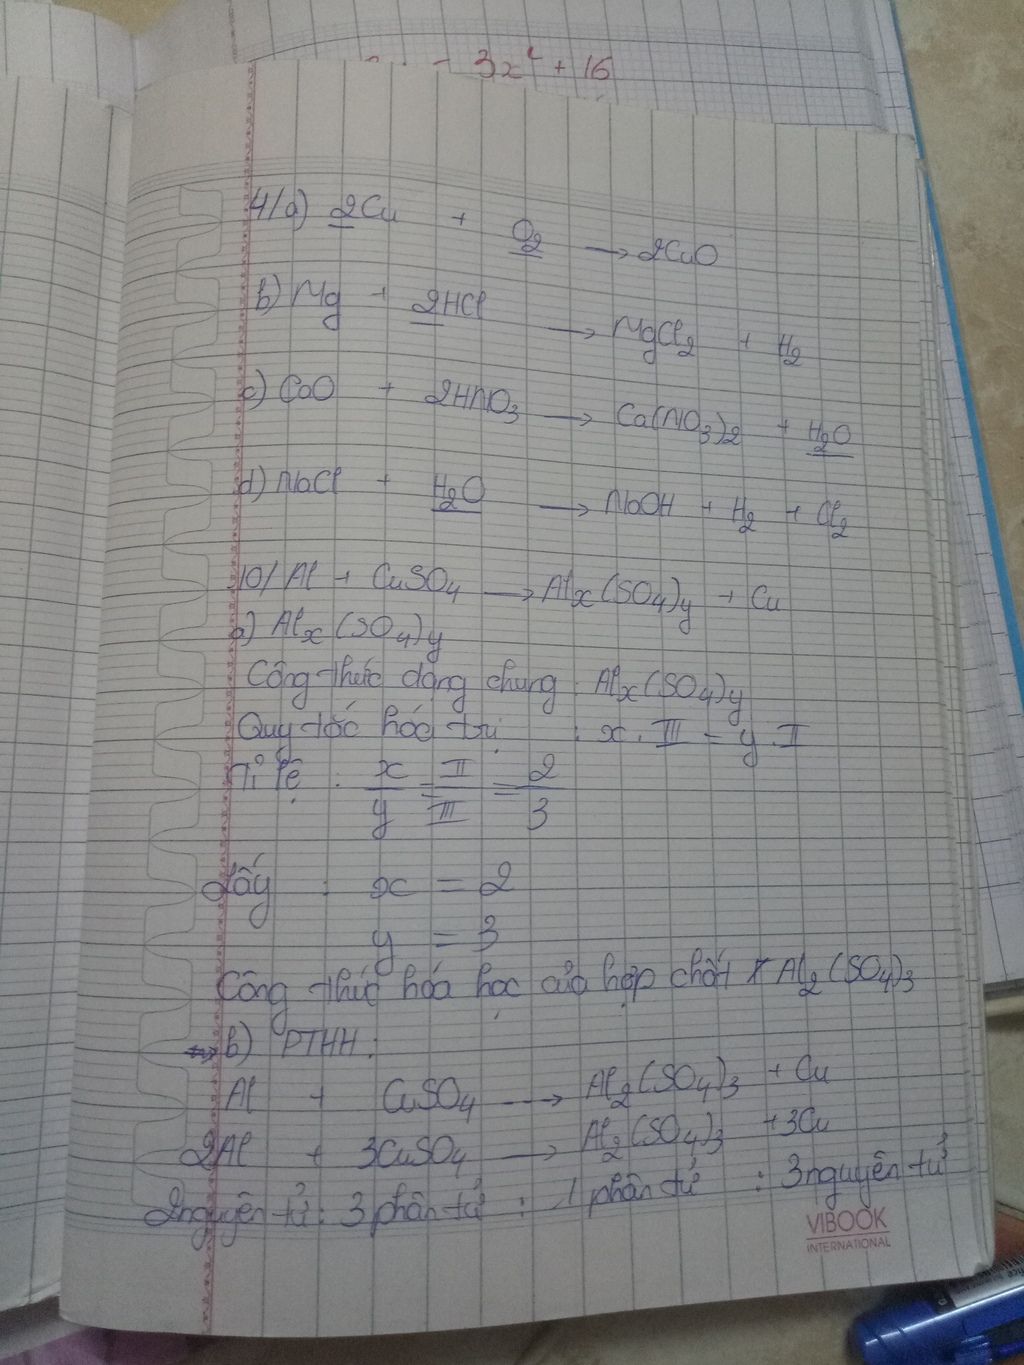 - 3x² + 16
4/a) 2Cu + O₂ → 2CuO
b) Mg + 2HCl → MgCl₂ + H₂
c) CaO + 2HNO₃ → Ca(NO₃)₂ + H₂O
d) NaCl + H₂O → NaOH + H₂ + Cl₂
10/ Al + CuSO₄ → Alx(SO₄)y + Cu
a) Alx(SO₄)y
Công thức dạng chung : Alx(SO₄)y
Quy tắc hóa trị : x . III = y . I
Tỉ lệ : x/y = II/III = 2/3
Lấy : x = 2
y = 3
Công thức hóa học của hợp chất Al₂(SO₄)₃
b) PTHH :
Al + CuSO₄ → Al₂(SO₄)₃ + Cu
2Al + 3CuSO₄ → Al₂(SO₄)₃ + 3Cu
2nguyên tử : 3 phân tử : 1 phân tử : 3 nguyên tử
VIBOOK
INTERNATIONAL